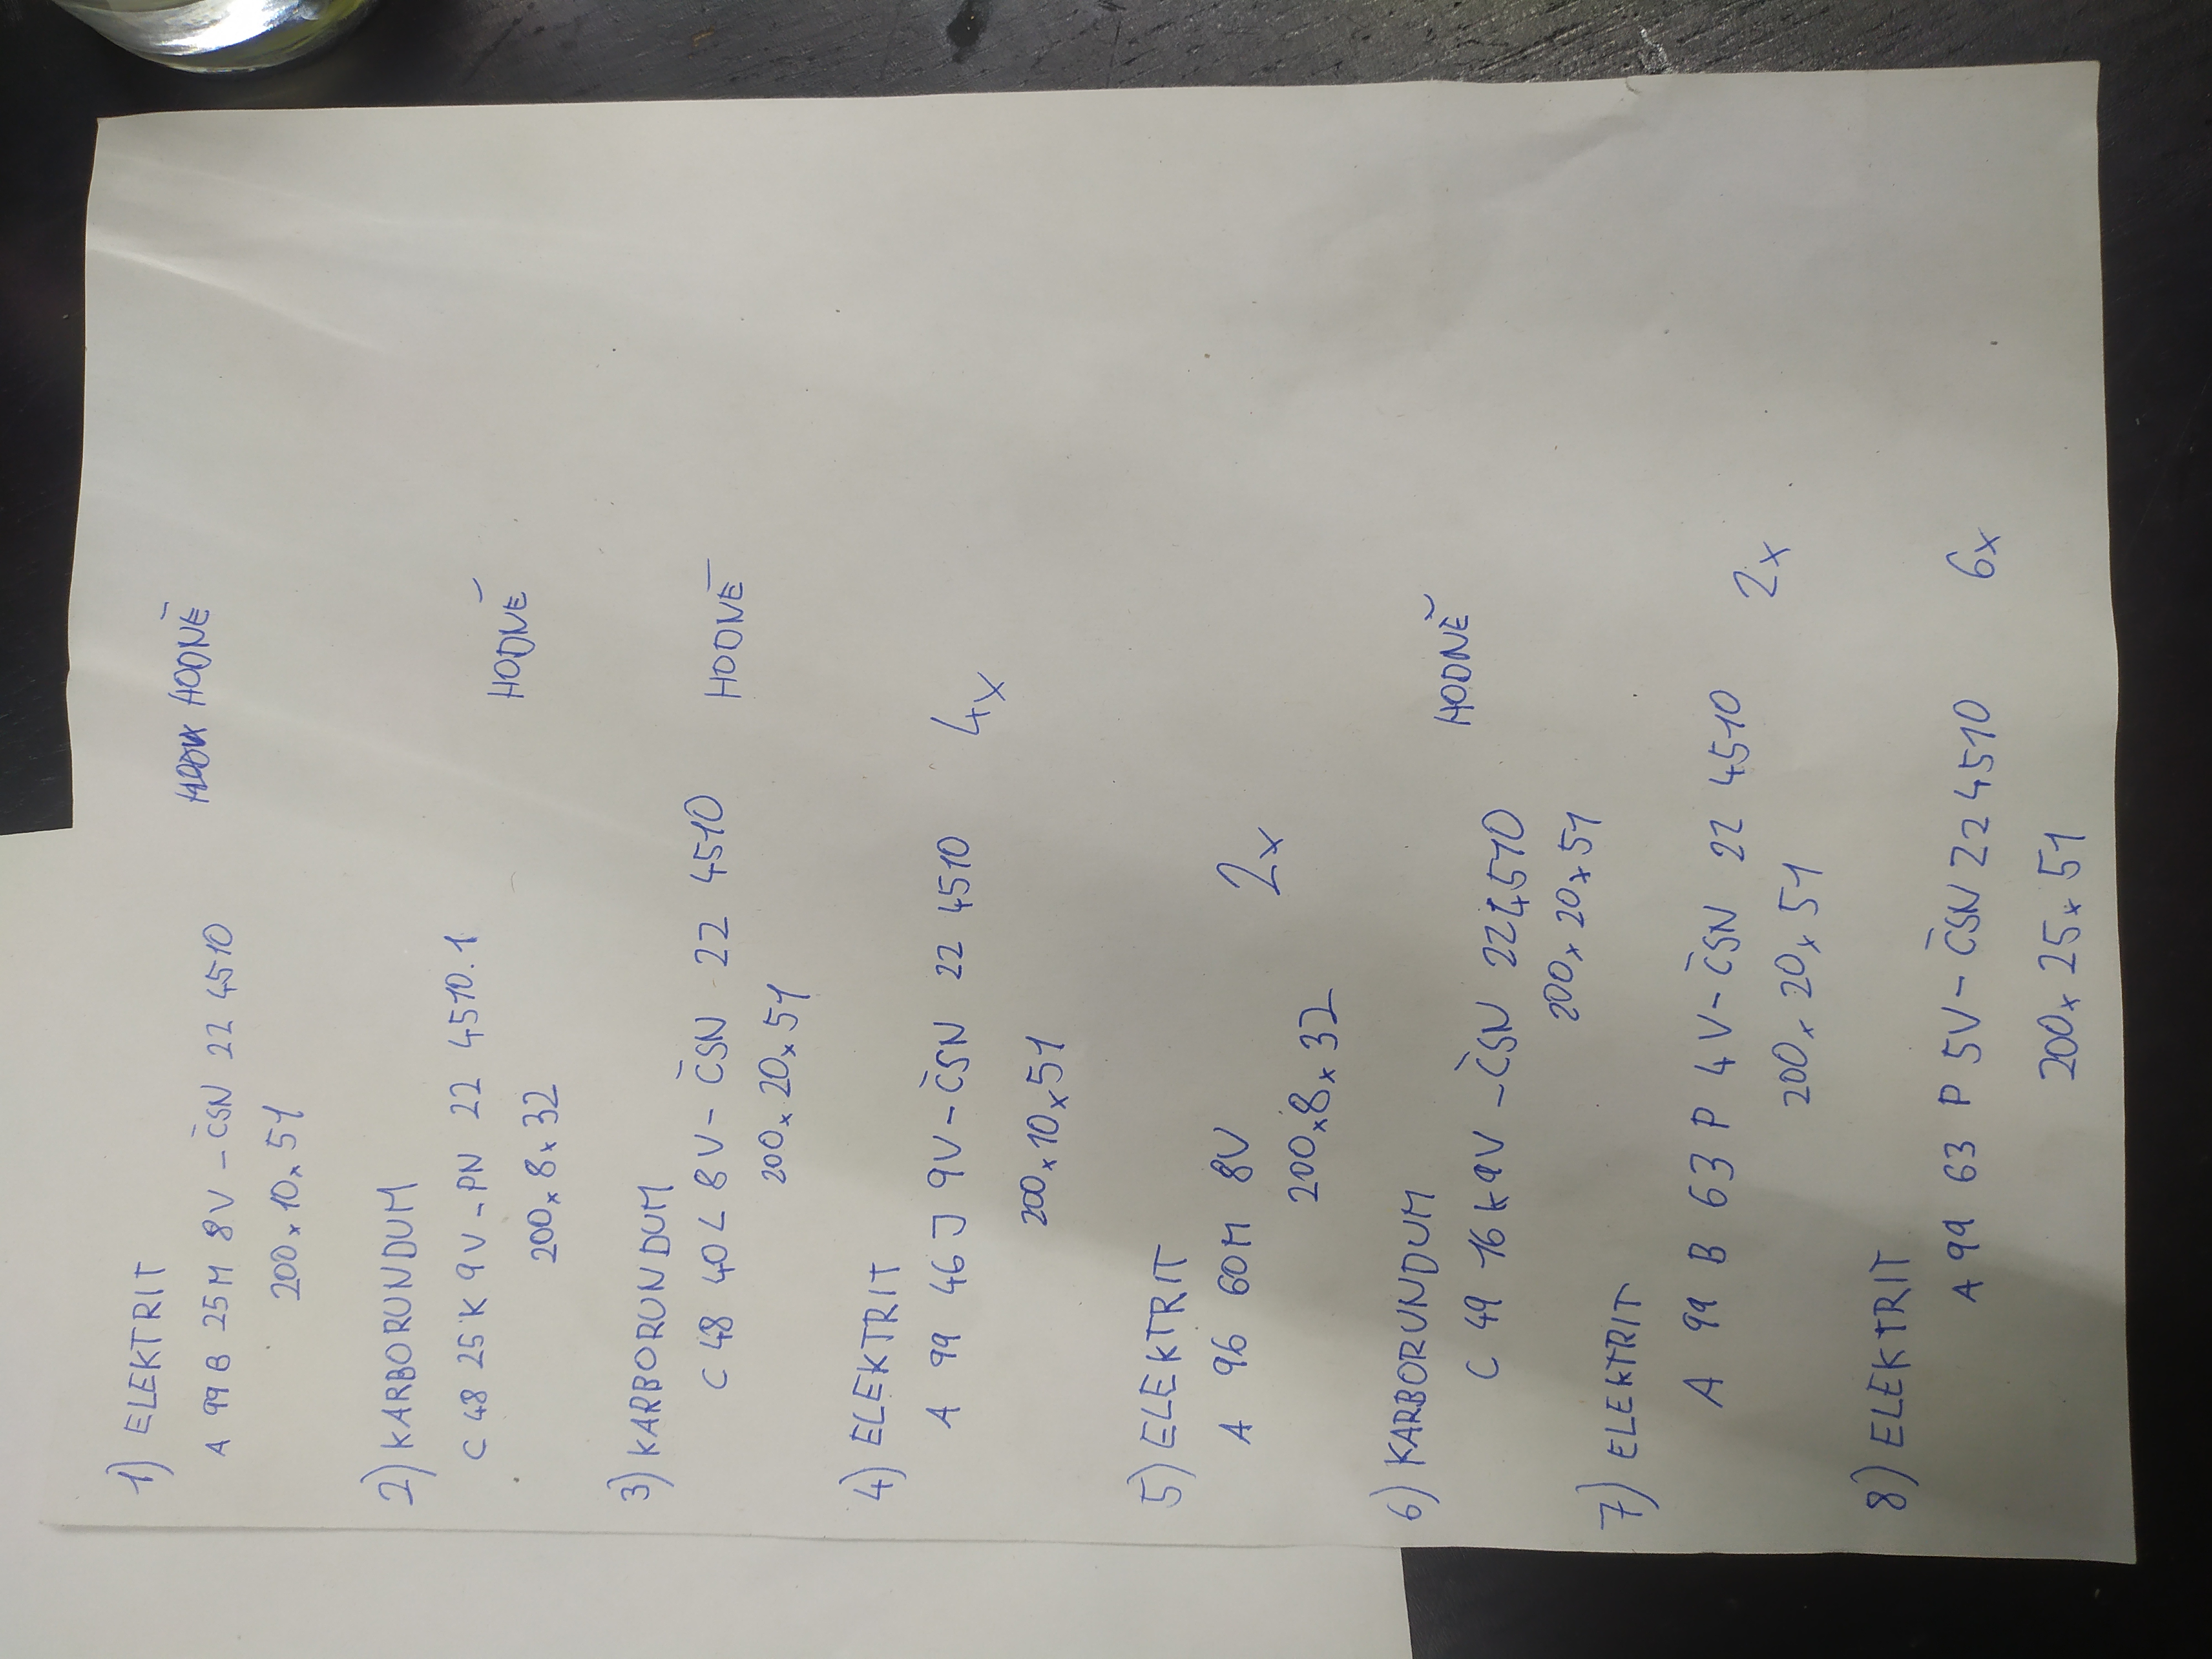 1) ELEKTRIT
A 99 B 25 M 8V - ČSN 22 4510 HODNĚ
200 x 10 x 51
2) KARBORUNDUM
C 48 25 K 9V - PN 22 4510.1
200 x 8 x 32 HODNĚ
3) KARBORUNDUM
C 48 40 L 8V - ČSN 22 4510 HODNĚ
200 x 20 x 51
4) ELEKTRIT
A 99 46 J 9V - ČSN 22 4510 4x
200 x 10 x 51
5) ELEKTRIT
A 96 60 M 8V 2x
200 x 8 x 32
6) KARBORUNDUM HODNĚ
C 49 16 k 9V - ČSN 22 4510
200 x 20 x 51
7) ELEKTRIT
A 99 B 63 P 4V - ČSN 22 4510 2x
200 x 20 x 51
8) ELEKTRIT
A 99 63 P 5V - ČSN 22 4510 6x
200 x 25 x 51